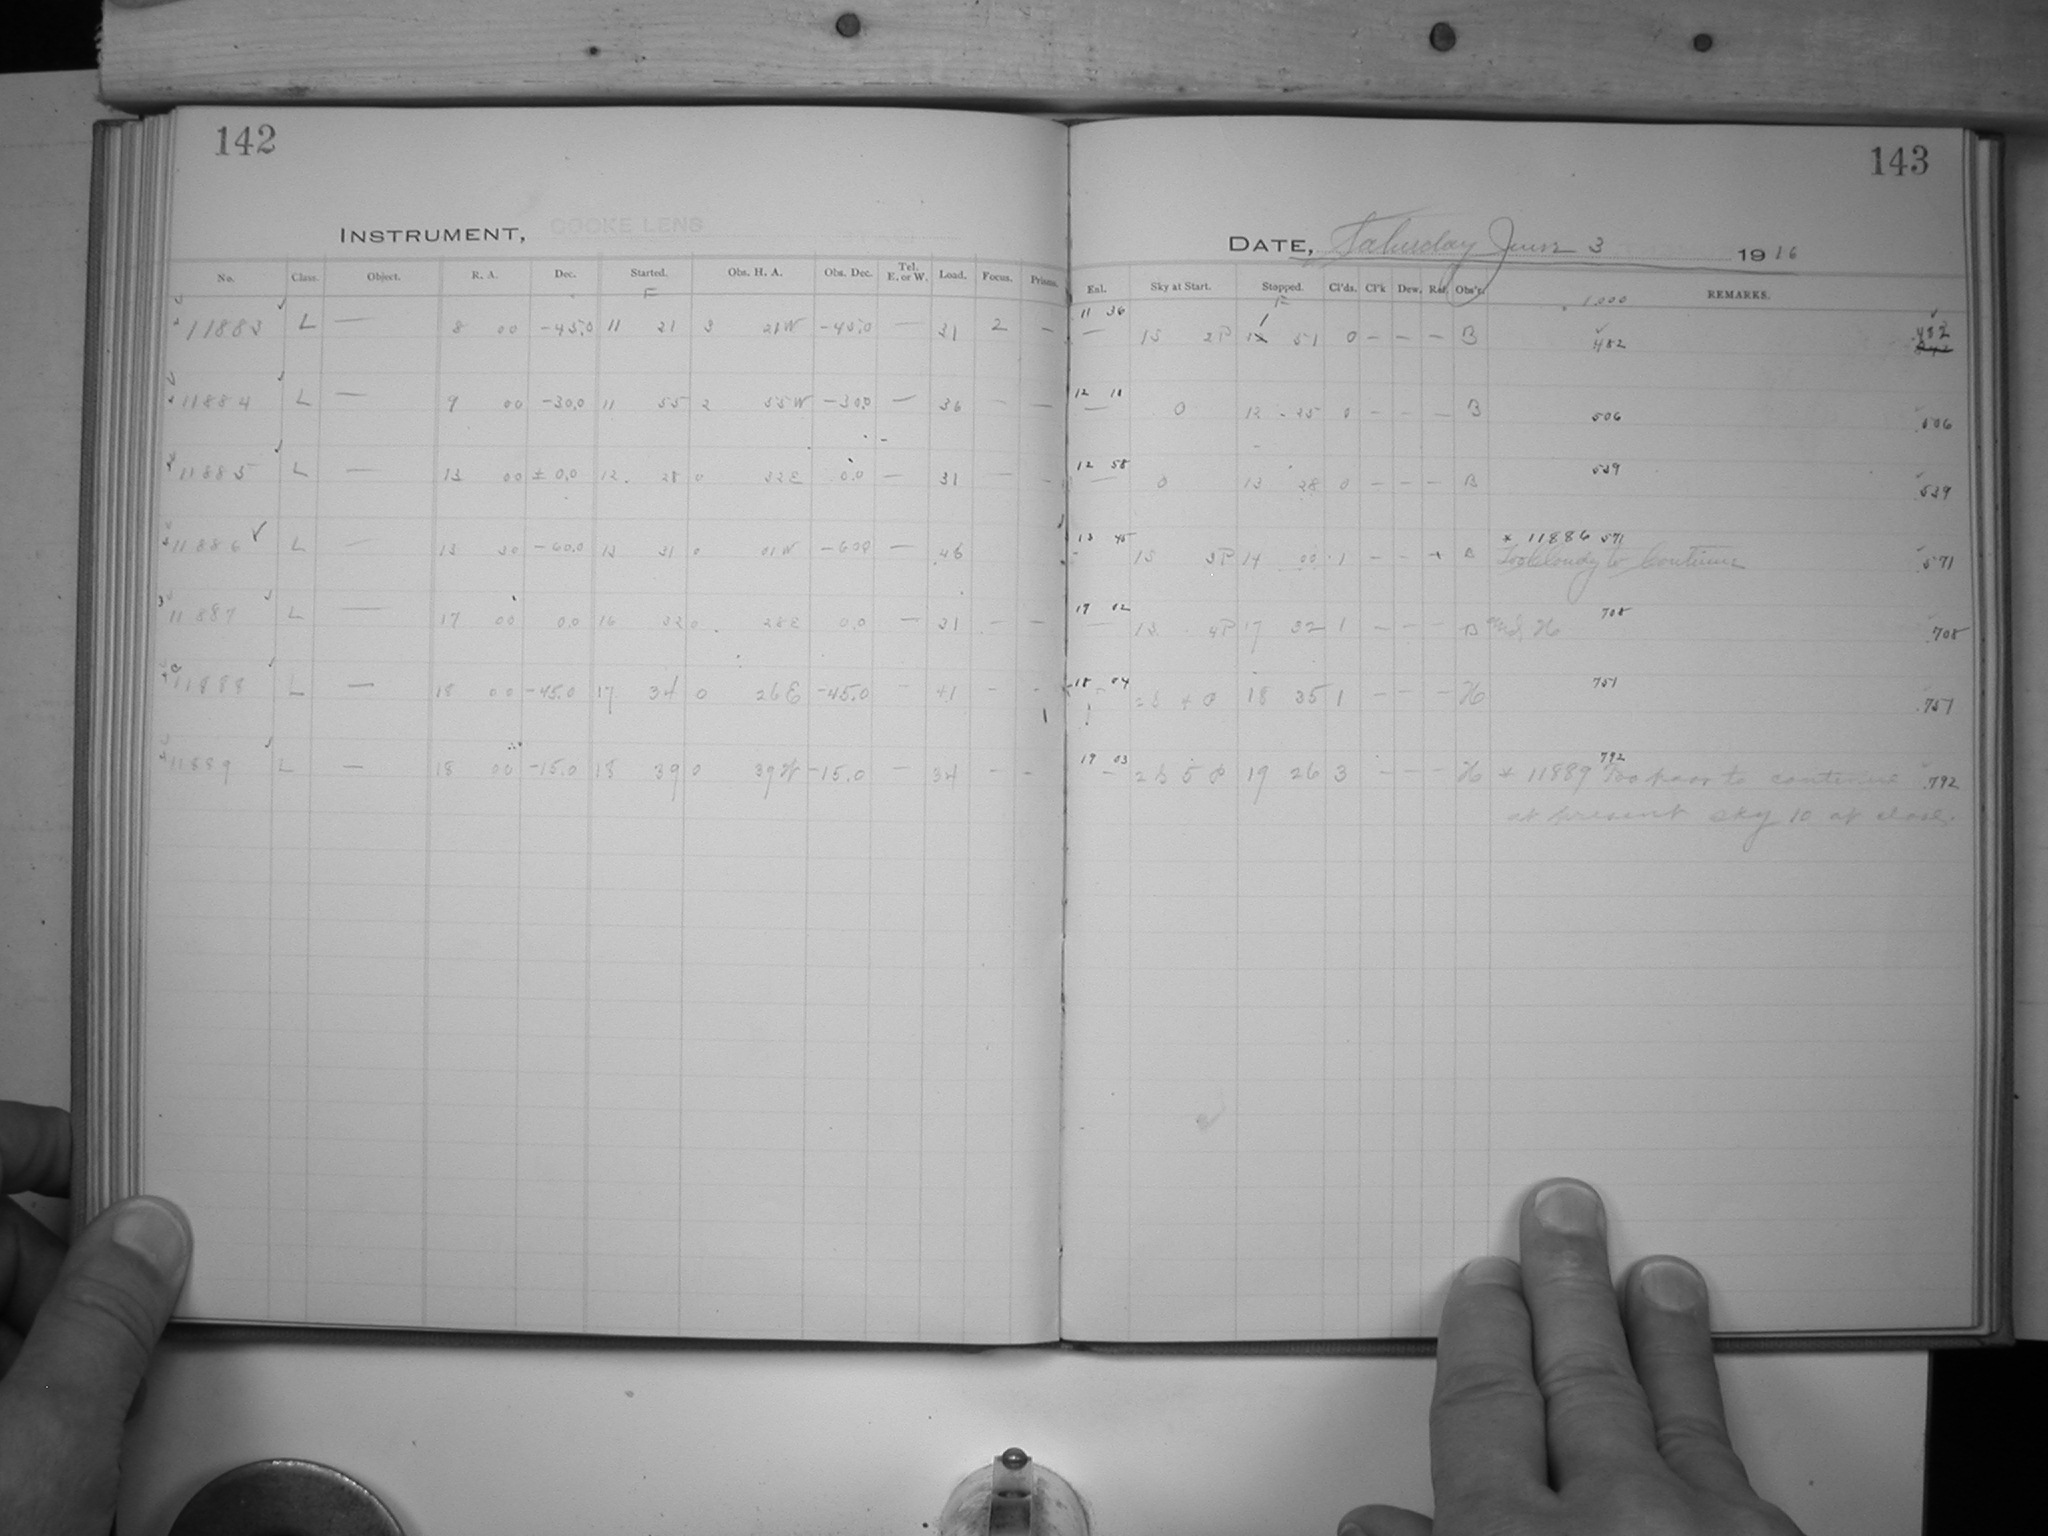 142
INSTRUMENT, COOKE LENS
No. Class. Object. R. A. Dec. Started. Obs. H. A. Obs. Dec. Tel. E. or W. Load. Focus. Prisms.
F
11883 L — 8 00 -45.0 11 21 3 21W -45.0 — 31 2 —
11884 L — 9 00 -30.0 11 55 2 55W -30.0 — 36 — —
11885 L — 13 00 ± 0.0 12 28 0 32E 0.0 — 31 — -
11886 L — 13 30 -60.0 13 31 0 01W -60.0 — 46
11887 L — 17 00 0.0 16 32 0 28E 0.0 — 31 - -
11888 L — 18 00 -45.0 17 34 0 26E -45.0 - 41 - -
11889 L — 18 00 -15.0 18 39 0 39W -15.0 — 34 - -
143
DATE, Saturday June 3 1916
Enl. Sky at Start. Stopped. Cl'ds. Cl'k Dew. Ref. Obs'r. REMARKS.
F 1.000
11 36 — 1S 2P 11 51 0 — — — B 482 .482
12 10 — 0 12 25 0 - - — B 506 .506
12 58 — 0 13 28 0 - — — B 539 .539
* 11886 571
13 45 - 1S 3P 14 00 1 - - + B Too Cloudy to Continue .571
17 02 — 1S 4P 17 32 1 - - - B and H 708 .708
18 04 2S 4P 18 35 1 - - - H 751 .751
19 03 — 2S 5P 19 26 3 - - - H 792
* 11889 Too poor to continue .792
at present sky 10 at close.